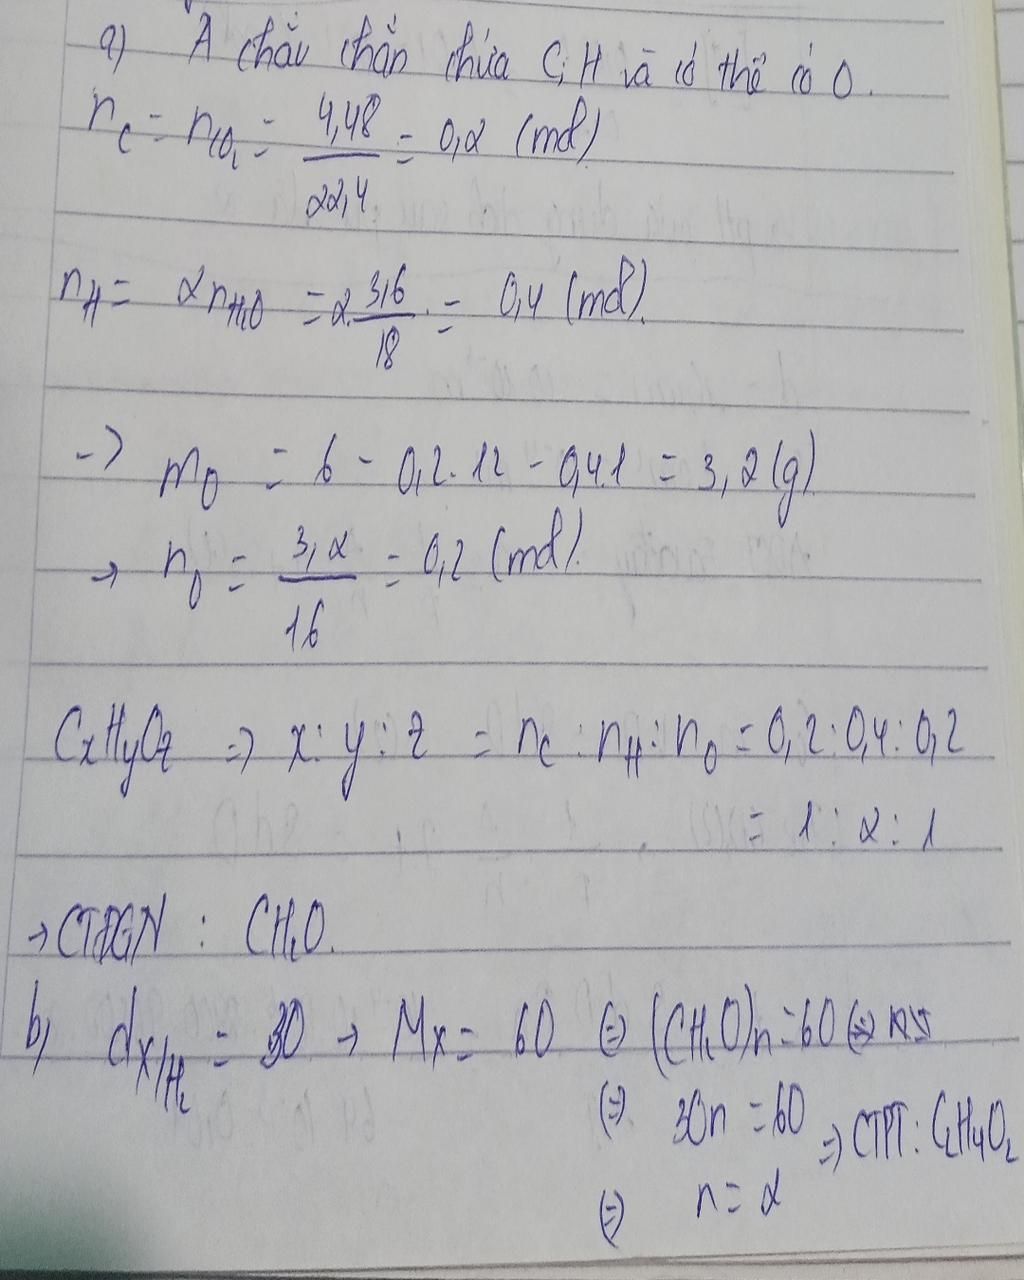 a) A chắc chắn chứa C, H và có thể có O.
n_C = n_CO₂ = 4,48/22,4 = 0,2 (mol)
n_H = 2n_H₂O = 2.3,6/18 = 0,4 (mol).
-> m_O = 6 - 0,2.12 - 0,4.1 = 3,2 (g)
→ n_O = 3,2/16 = 0,2 (mol).
CxHyOz => x : y : z = n_C : n_H : n_O = 0,2 : 0,4 : 0,2
= 1 : 2 : 1
→ CTĐGN : CH₂O.
b) d_X/H₂ = 30 → M_X = 60 (=) (CH₂O)n = 60
(=) 30n = 60 => CTPT : C₂H₄O₂
(=) n = 2